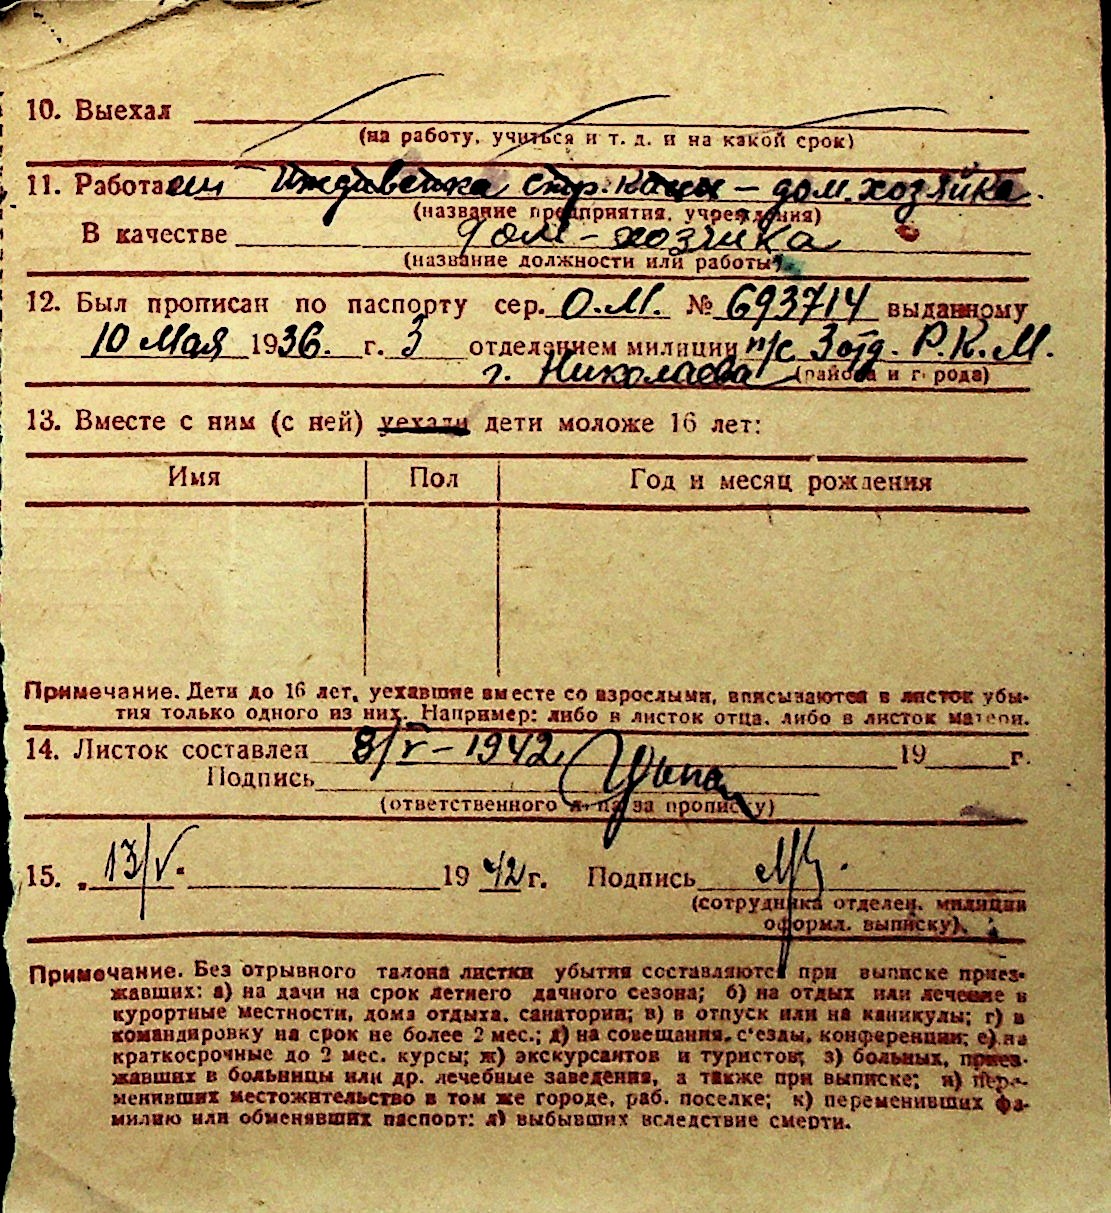 10. Выехал
(на работу, учиться и т. д. и на какой срок)
11. Работает Иждивенка стр. кассы – дом. хозяйка.
(название предприятия, учреждения)
В качестве дом – хозяйка
(название должности или работы)
12. Был прописан по паспорту сер. О.М. № 693714 выданному
10 Мая 1936. г. 3 отделением милиции п/с 3 отд. Р.К.М.
г. Николаева (района и города)
13. Вместе с ним (с ней) уехали дети моложе 16 лет:
Имя Пол Год и месяц рождения
Примечание. Дети до 16 лет, уехавшие вместе со взрослыми, вписываются в листок убы-
тия только одного из них. Например: либо в листок отца, либо в листок матери.
14. Листок составлен 8/V – 1942 19 г.
Подпись
(ответственного лица за прописку)
15. „13/V" 1942 г. Подпись
(сотрудника отделен. милиции
оформл. выписку).
Примечание. Без отрывного талона листки убытия составляются при выписке приез-
жавших: а) на дачи на срок летнего дачного сезона; б) на отдых или лечение в
курортные местности, дома отдыха, санатории; в) в отпуск или на каникулы; г) в
командировку на срок не более 2 мес.; д) на совещания, с'езды, конференции; е) на
краткосрочные до 2 мес. курсы; ж) экскурсантов и туристов; з) больных, приез-
жавших в больницы или др. лечебные заведения, а также при выписке; и) пере-
менивших местожительство в том же городе, раб. поселке; к) переменивших фа-
милию или обменявших паспорт; л) выбывших вследствие смерти.